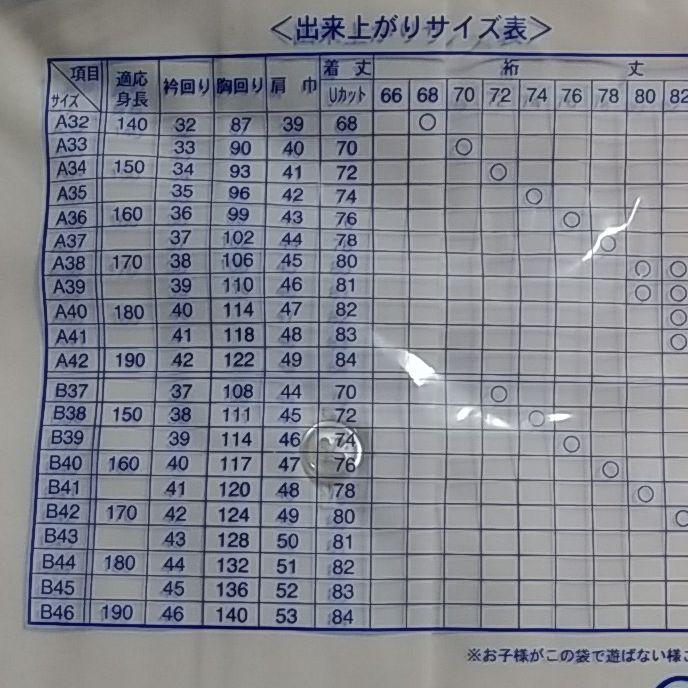 ＜出来上がりサイズ表＞
項目 サイズ 適応身長 衿回り 胸回り 肩巾 着丈 Uカット 裄丈
66 68 70 72 74 76 78 80 82
A32 140 32 87 39 68 ○
A33 33 90 40 70 ○
A34 150 34 93 41 72 ○
A35 35 96 42 74 ○
A36 160 36 99 43 76 ○
A37 37 102 44 78 ○
A38 170 38 106 45 80 ○ ○
A39 39 110 46 81 ○ ○
A40 180 40 114 47 82 ○
A41 41 118 48 83 ○
A42 190 42 122 49 84
B37 37 108 44 70 ○
B38 150 38 111 45 72 ○
B39 39 114 46 74 ○
B40 160 40 117 47 76 ○
B41 41 120 48 78 ○
B42 170 42 124 49 80 ○
B43 43 128 50 81
B44 180 44 132 51 82
B45 45 136 52 83
B46 190 46 140 53 84
※お子様がこの袋で遊ばない様